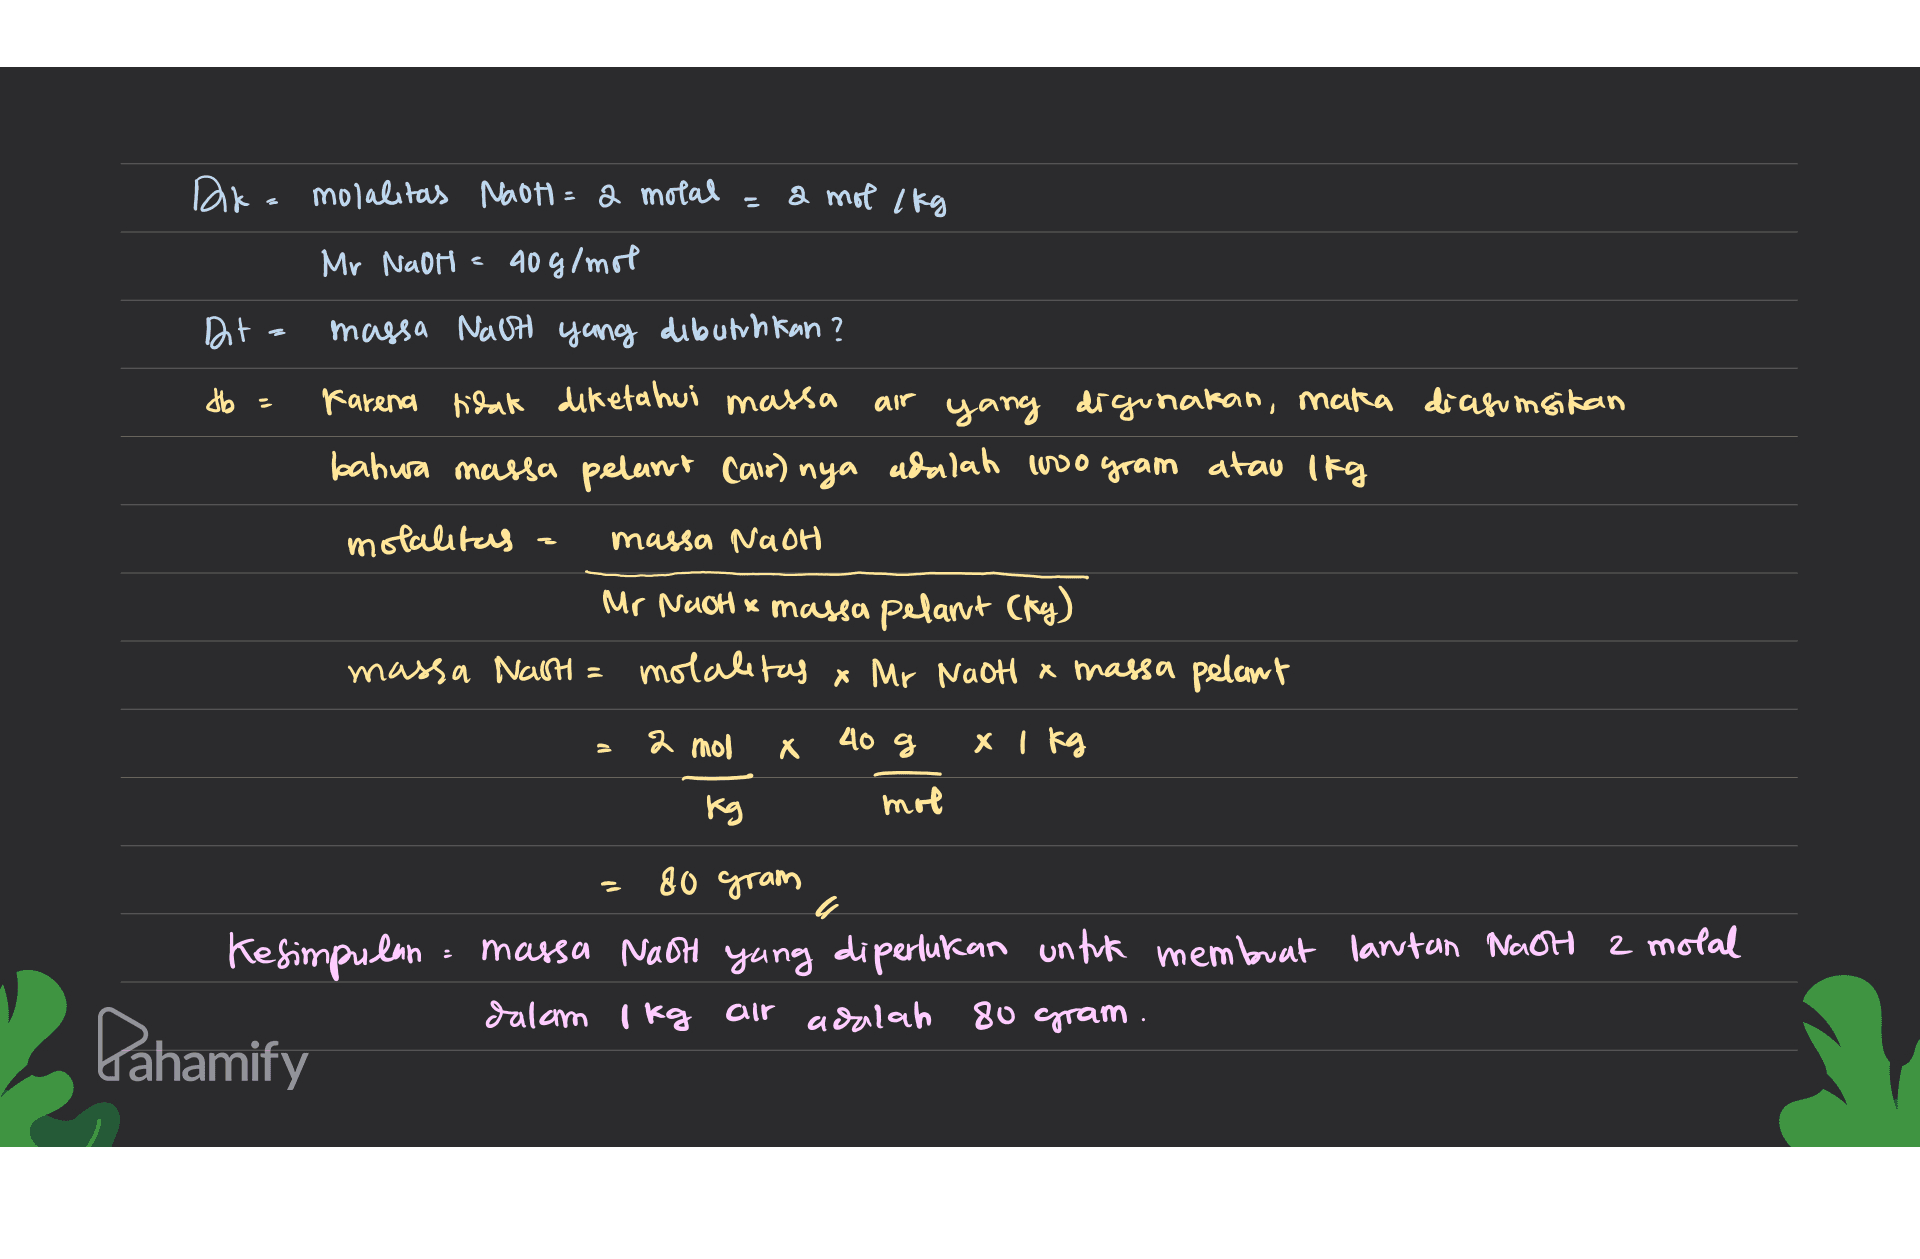 Dik = molalitas NaOH = 2 molal = 2 mol /kg
Mr NaOH = 40 g/mol
Dit = massa NaOH yang dibutuhkan?
Jb = Karena tidak diketahui massa air yang digunakan, maka diasumsikan
bahwa massa pelarut (air) nya adalah 1000 gram atau 1 kg
molalitas = massa NaOH
Mr NaOH x massa pelarut (kg)
massa NaOH = molalitas x Mr NaOH x massa pelarut
= 2 mol x 40 g x 1 kg
kg mol
= 80 gram //
Kesimpulan = massa NaOH yang diperlukan untuk membuat larutan NaOH 2 molal
dalam 1 kg air adalah 80 gram.
Pahamify